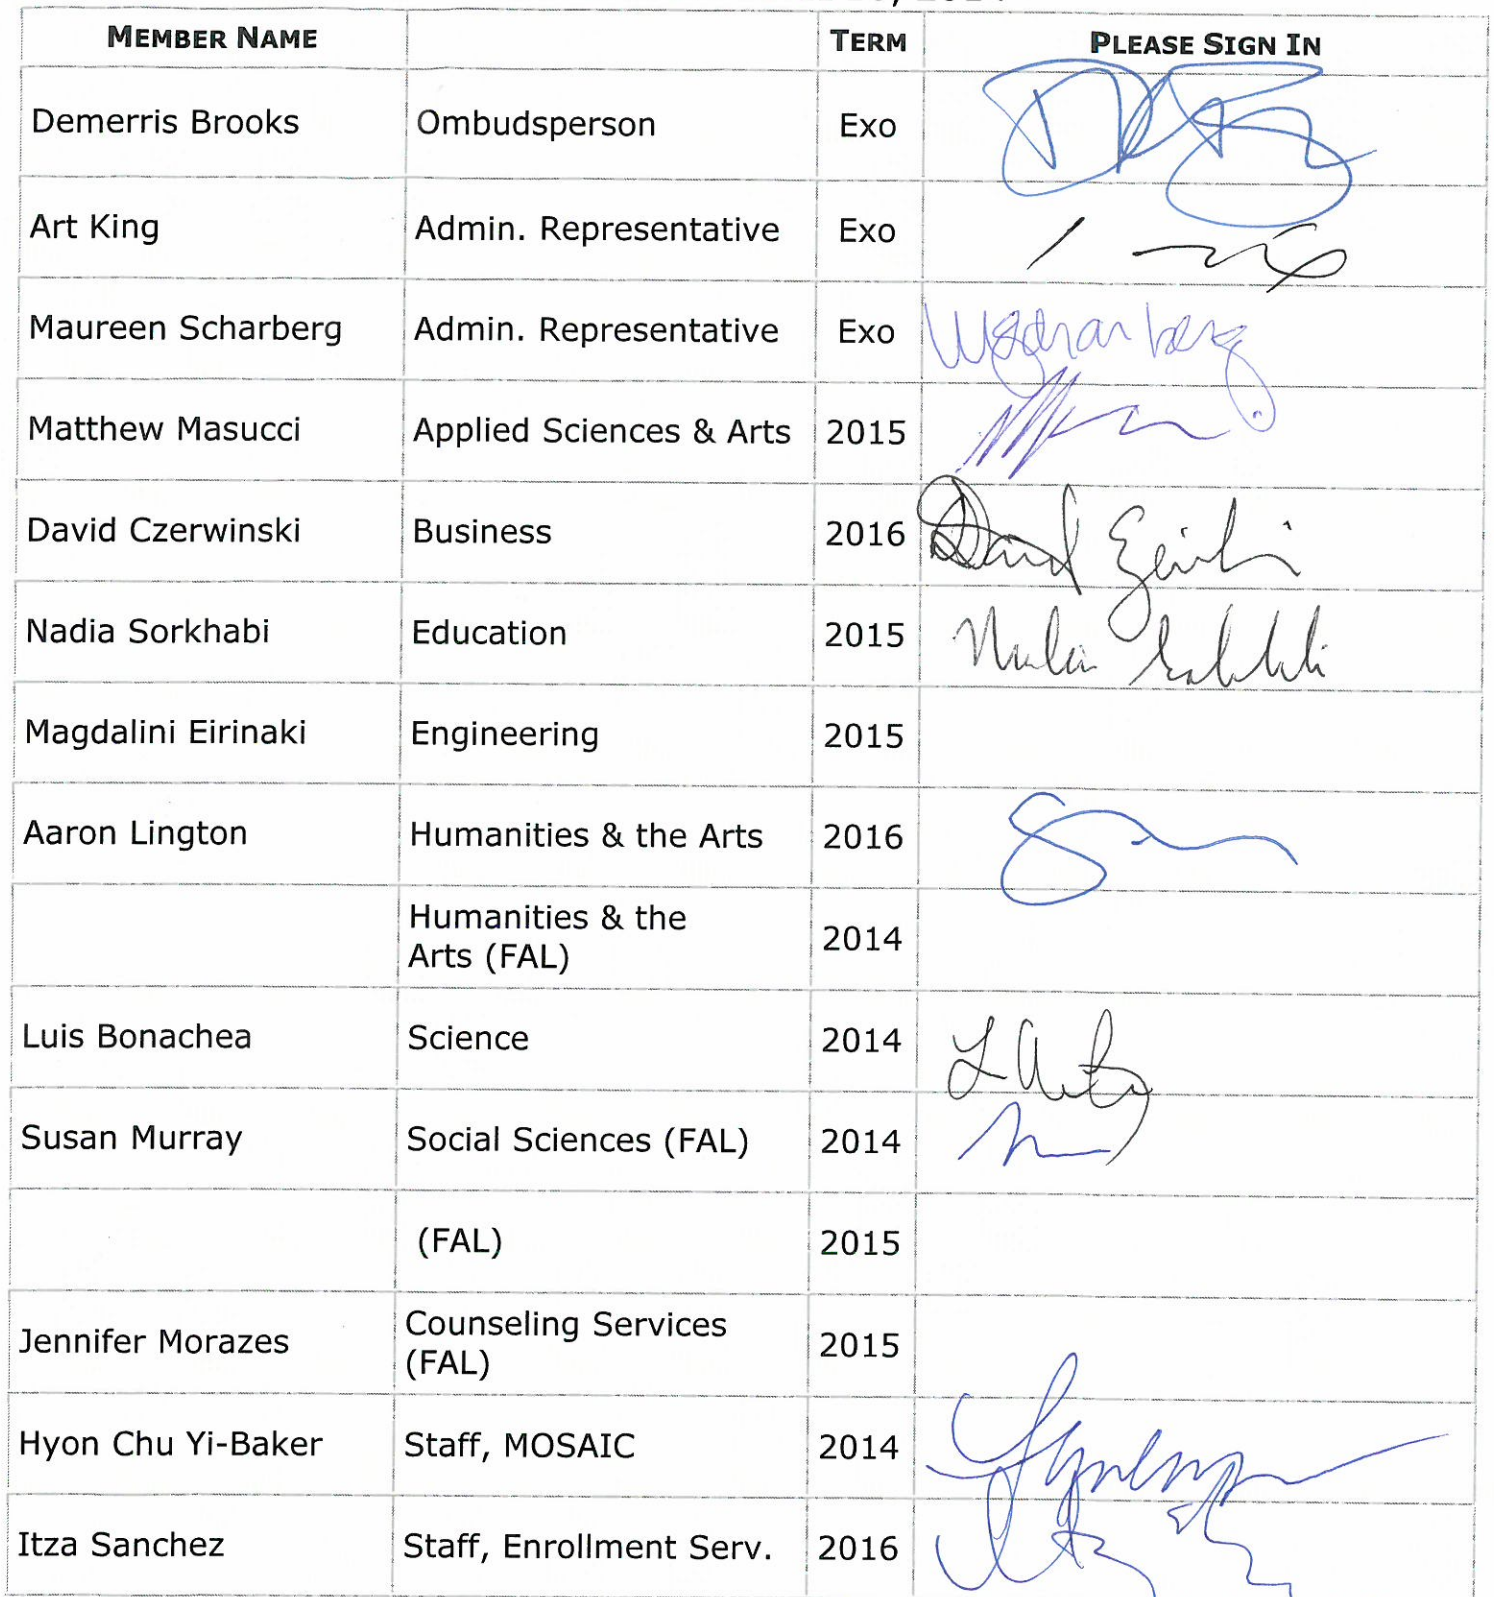 MEMBER NAME TERM PLEASE SIGN IN
Demerris Brooks Ombudsperson Exo
Art King Admin. Representative Exo
Maureen Scharberg Admin. Representative Exo
Matthew Masucci Applied Sciences & Arts 2015
David Czerwinski Business 2016
Nadia Sorkhabi Education 2015
Magdalini Eirinaki Engineering 2015
Aaron Lington Humanities & the Arts 2016
Humanities & the
Arts (FAL) 2014
Luis Bonachea Science 2014
Susan Murray Social Sciences (FAL) 2014
(FAL) 2015
Jennifer Morazes Counseling Services
(FAL) 2015
Hyon Chu Yi-Baker Staff, MOSAIC 2014
Itza Sanchez Staff, Enrollment Serv. 2016